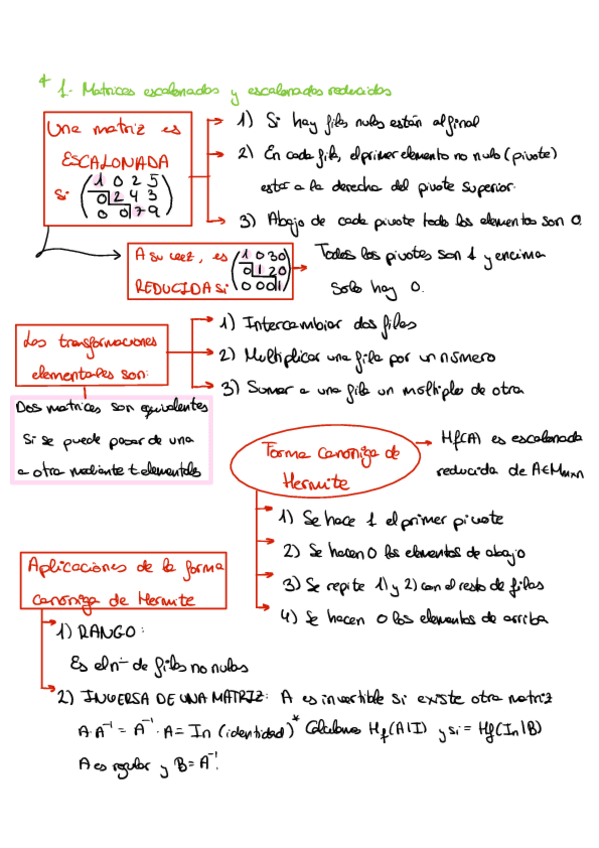 * 1. Matrices escalonadas y escalonadas reducidas
Una matriz es
ESCALONADA
si
1 0 2 5
0 2 4 3
0 0 7 9
1) Si hay filas nulas están al final
2) En cada fila, el primer elemento no nulo (pivote)
estar a la derecha del pivote superior.
3) Abajo de cada pivote todo los elementos son 0.
A su vez, es
REDUCIDA si
1 0 3 0
0 1 2 0
0 0 0 1
Todos los pivotes son 1 y encima
solo hay 0.
Las transformaciones
elementales son:
1) Intercambiar dos filas
2) Multiplicar una fila por un número
3) Sumar a una fila un múltiplo de otra
Dos matrices son equivalentes
si se puede pasar de una
a otra mediante t elementales
Forma canoniga de
Hermite
Hf(A) es escalonada
reducida de A∈Mmxn
1) Se hace 1 el primer pivote
2) Se hacen 0 los elementos de abajo
3) Se repite 1) y 2) con el resto de filas
4) Se hacen 0 los elementos de arriba
Aplicaciones de la forma
canoniga de Hermite
1) RANGO:
Es el nº de filas no nulas
2) INVERSA DE UNA MATRIZ: A es invertible si existe otra matriz
A·A⁻¹ = A⁻¹·A = In (identidad)* Calculamos Hf(A|I) y si = Hf(In|B)
A es regular y B = A⁻¹.